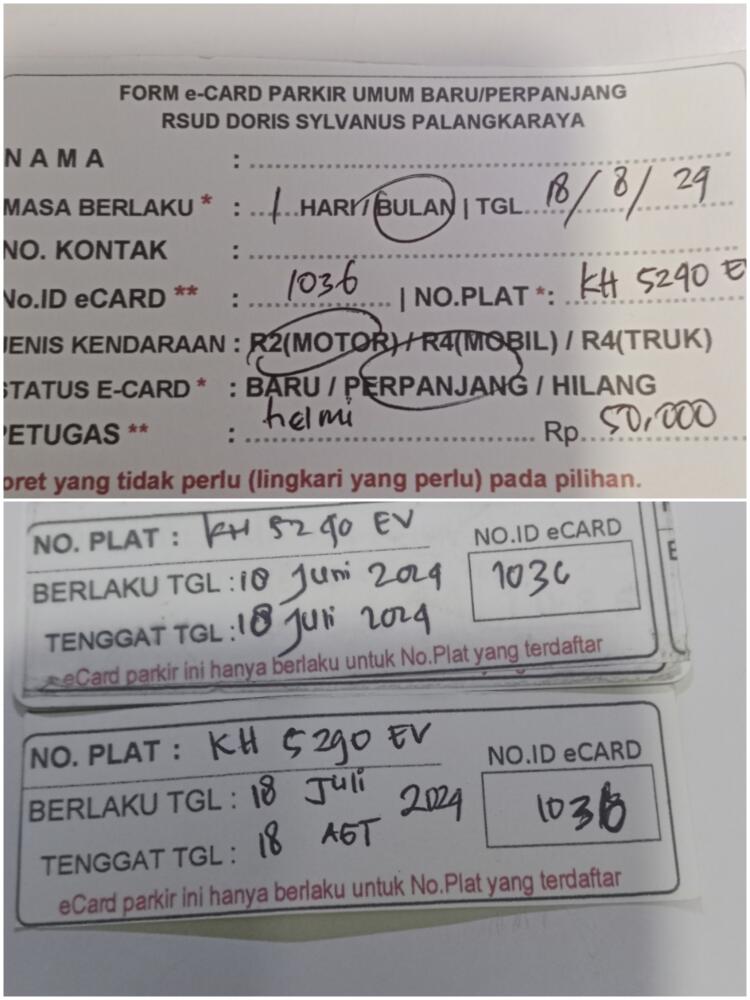 FORM e-CARD PARKIR UMUM BARU/PERPANJANG
RSUD DORIS SYLVANUS PALANGKARAYA
NAMA :
MASA BERLAKU * : 1 HARI / BULAN | TGL 18/8/24
NO. KONTAK :
No.ID eCARD ** : 1036 | NO.PLAT *: KH 5290 E
JENIS KENDARAAN : R2(MOTOR) / R4(MOBIL) / R4(TRUK)
STATUS E-CARD * : BARU / PERPANJANG / HILANG
PETUGAS ** : helmi Rp. 50,000
oret yang tidak perlu (lingkari yang perlu) pada pilihan.
NO. PLAT : KH 5290 EV
NO.ID eCARD
BERLAKU TGL : 18 Juni 2024
1036
TENGGAT TGL : 18 Juli 2024
eCard parkir ini hanya berlaku untuk No.Plat yang terdaftar
NO. PLAT : KH 5290 EV
NO.ID eCARD
BERLAKU TGL : 18 Juli 2024
1036
TENGGAT TGL : 18 AGT
eCard parkir ini hanya berlaku untuk No.Plat yang terdaftar